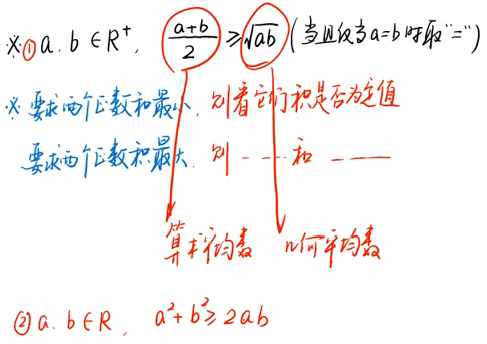 ※① a.b∈R⁺, (a+b)/2 ≥ √ab (当且仅当a=b时取"=")
※要求两个正数和最小,则看它们积是否为定值
要求两个正数积最大,则 --- 和 ——
算术平均数 几何平均数
② a.b∈R, a²+b²≥2ab